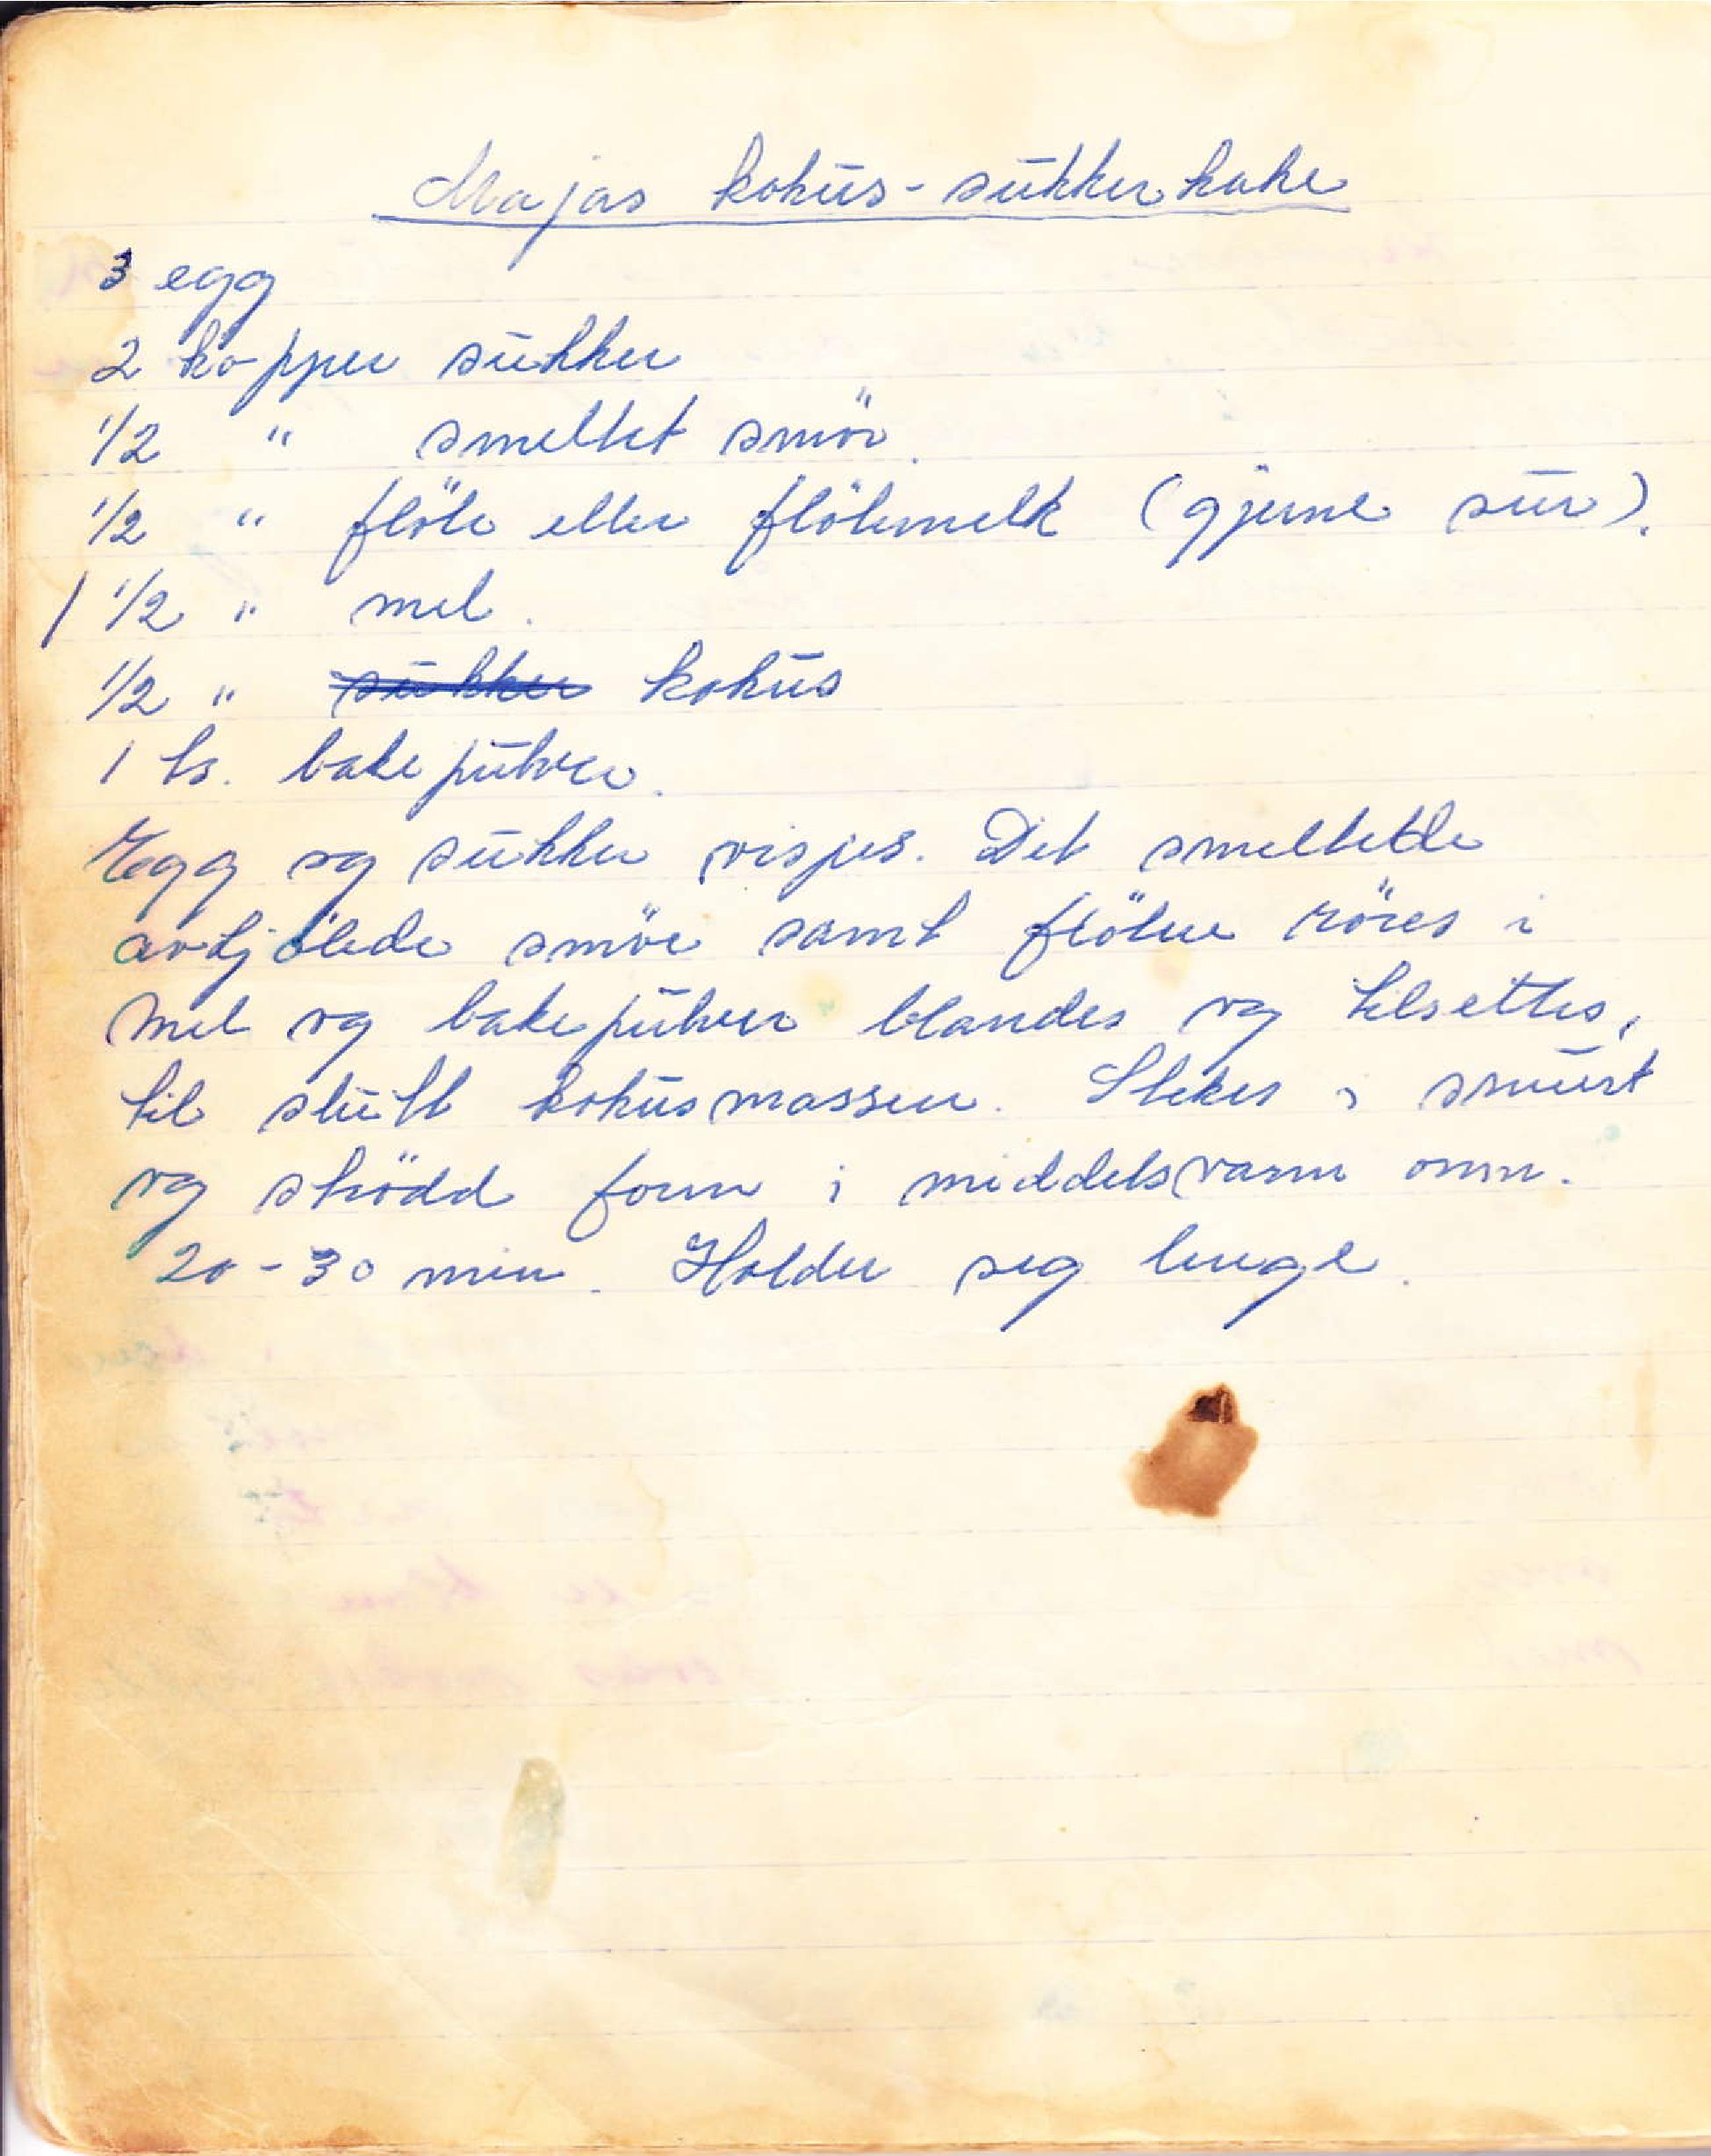 Majas kokus-sukkerkake
3 egg
2 kopper sukker
1/2 " smeltet smör.
1/2 " flöte eller flötemelk (gjerne sur).
1 1/2 " mel.
1/2 " ~~sukker~~ kokus
1 ts. bakepulver.
Egg og sukker vispes. Det smeltede
avkjölede smör samt flöten röres i
Mel og bakepulver blandes og tilsettes,
til slutt kokusmassen. Stekes i smurt
og strödd form i middelsvarm ovn.
20-30 min. Holder seg lenge.